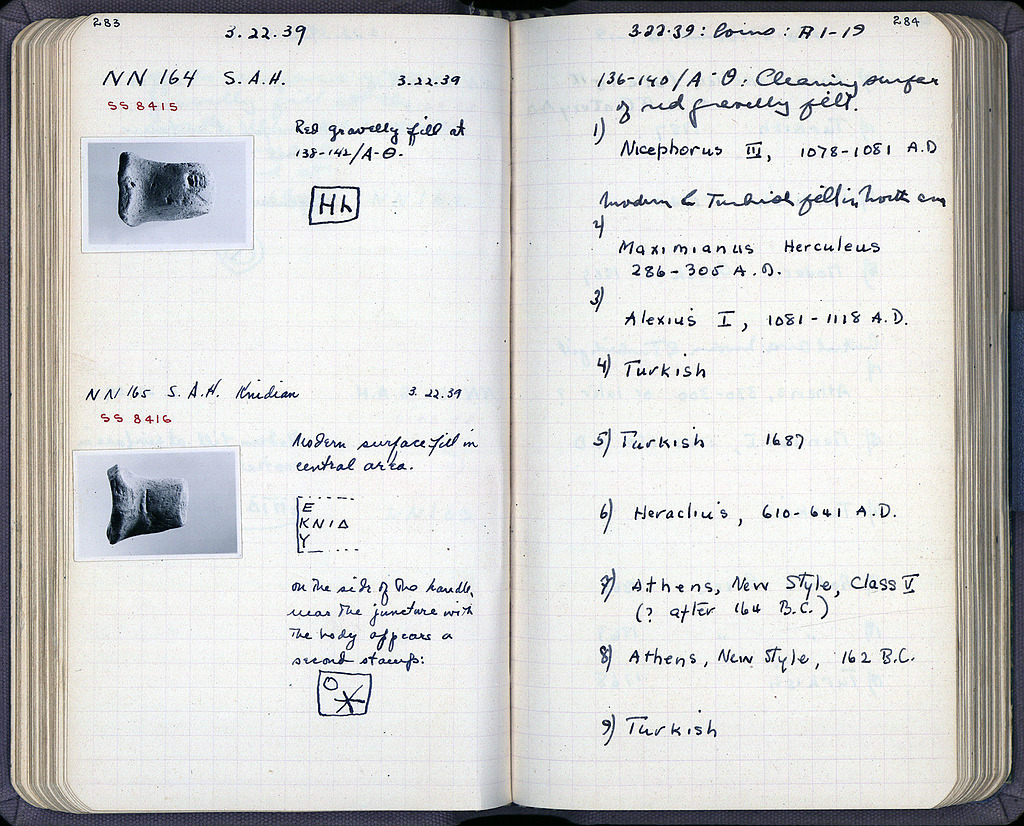 283
3.22.39
NN 164 S.A.H. 3.22.39
SS 8415
Red gravelly fill at
138-142/Α-Θ.
Hh
NN 165 S.A.H. Knidian 3.22.39
SS 8416
Modern surface fill in
central area.
E
KNIΔ
Y
on the side of the handle,
near the juncture with
the body appears a
second stamp:
284
3.22.39: Coins: A 1-19
136-140/Α-Θ: Cleaning surface
of red gravelly fill.
1)
Nicephorus III, 1078-1081 A.D
Modern & Turkish fill in north
2)
Maximianus Herculeus
286-305 A.D.
3)
Alexius I, 1081-1118 A.D.
4) Turkish
5) Turkish 1687
6) Heraclius, 610-641 A.D.
7) Athens, New Style, Class V
(? after 164 B.C.)
8) Athens, New Style, 162 B.C.
9) Turkish